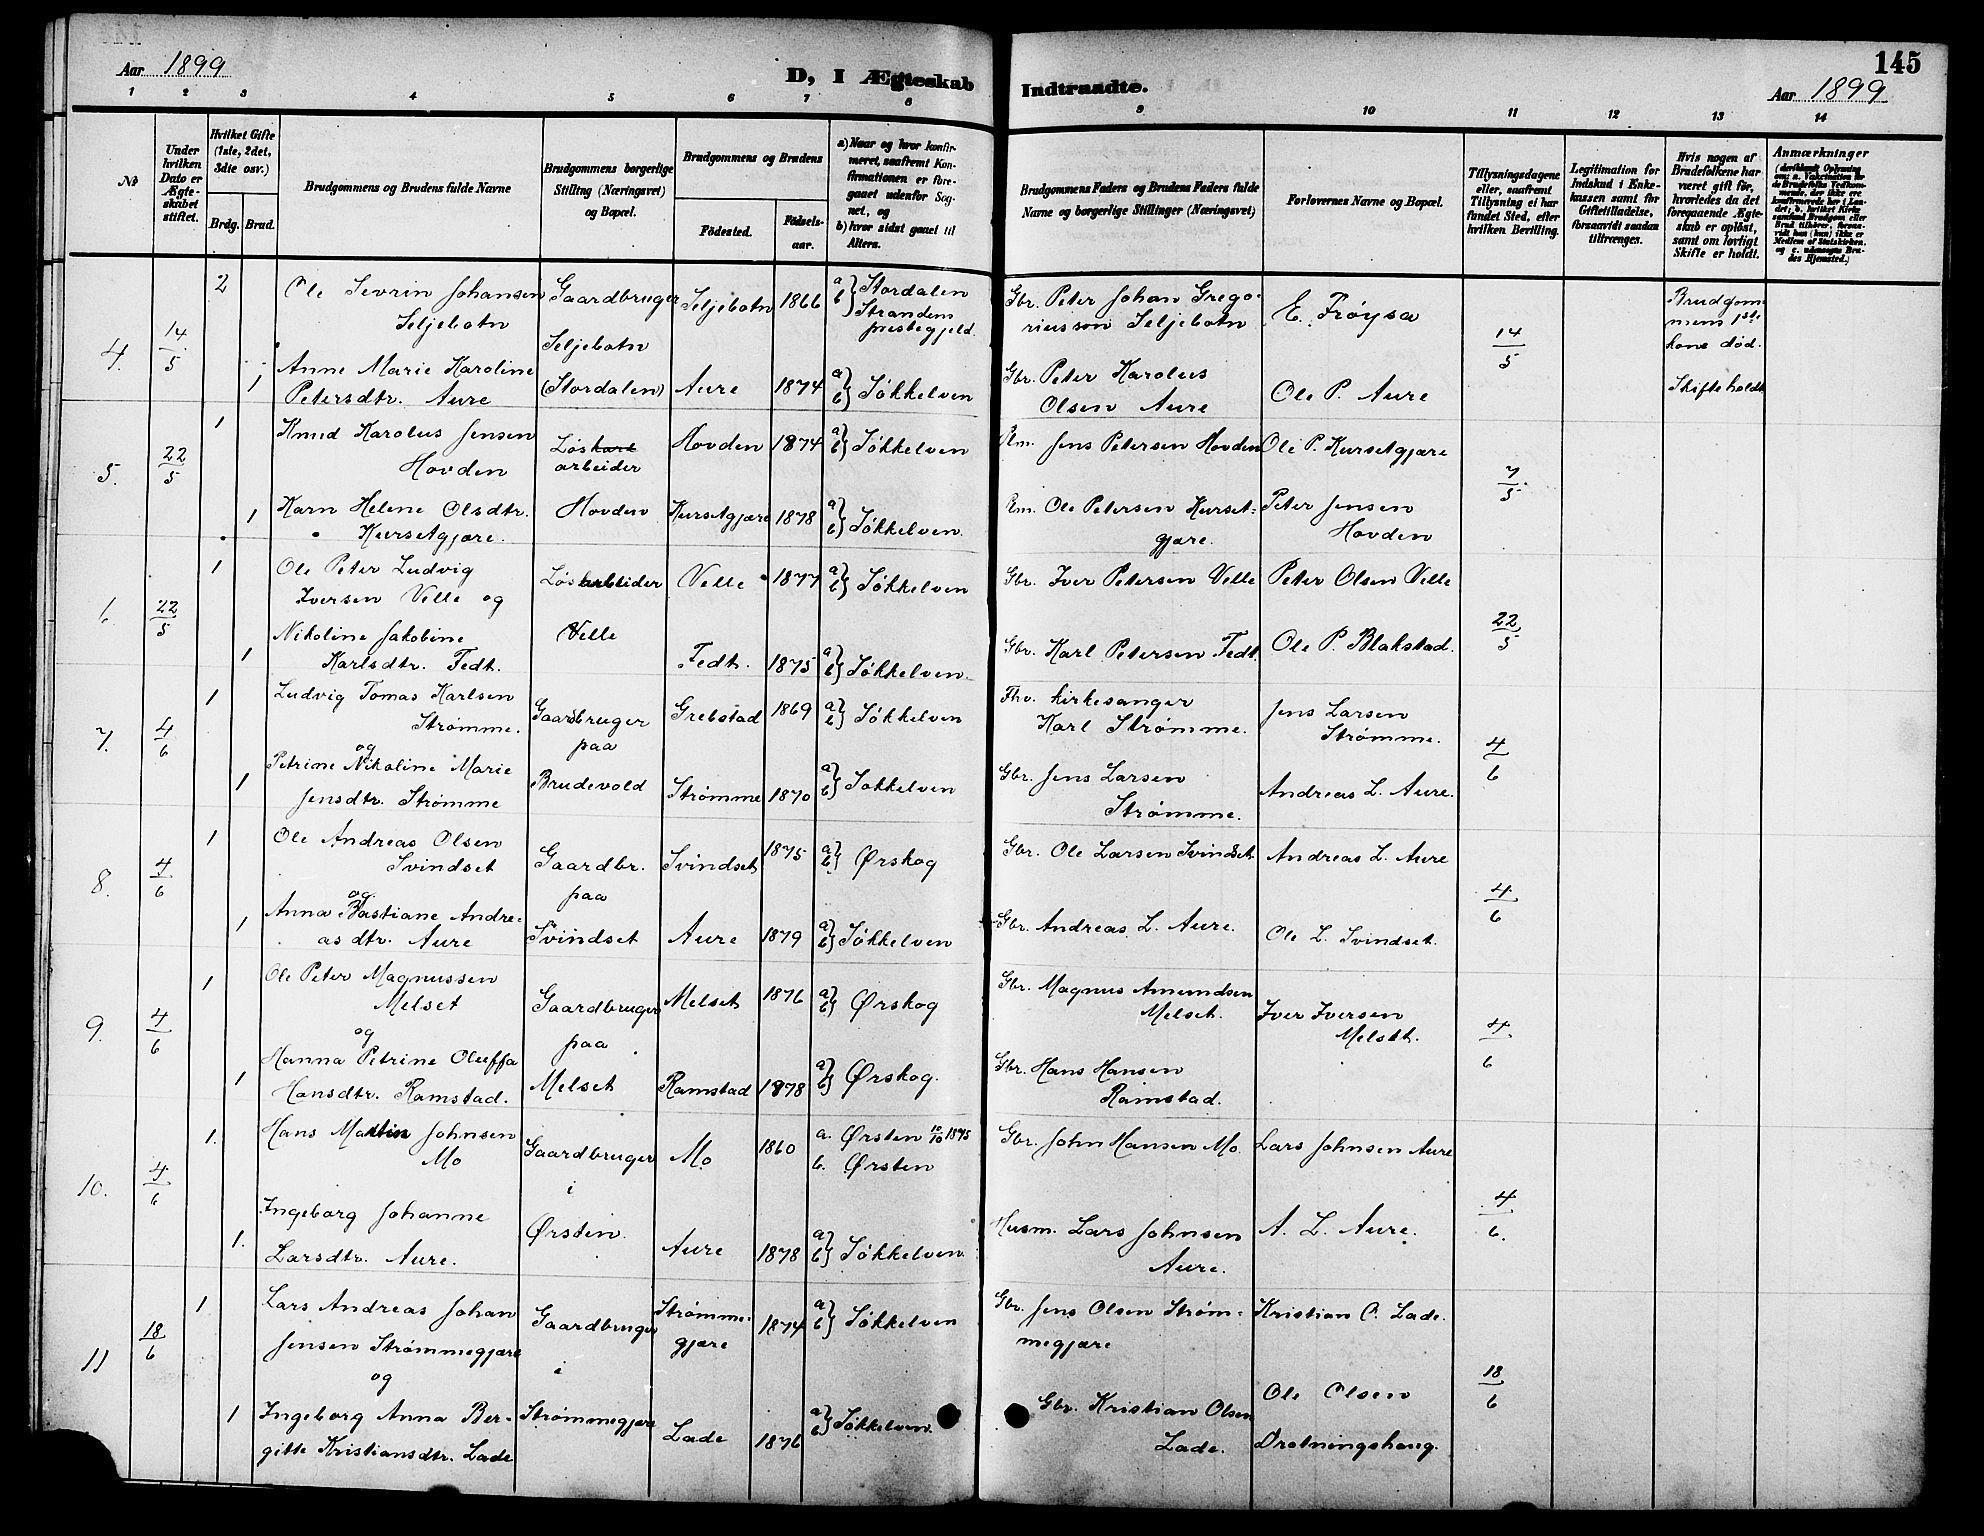 Aar 1899
D, I Ægteskab
Indtraadte.
145
Aar 1899
1 2 3 4 5 6 7 8 9 10 11 12 13 14
№
Under
hvilken
Dato er
Ægte-
skabet
stiftet.
Hvilket Gifte
(1ste, 2det,
3die osv.)
Brdg. Brud.
Brudgommens og Brudens fulde Navne
Brudgommens borgerlige
Stilling (Næringsvei)
og Bopæl.
Brudgommens og Brudens
Fødested.
Fødsels-
aar.
a) Naar og hvor konfir-
meret, saafremt Kon-
firmationen er fore-
gaaet udenfor Sog-
net, og
b) hvor sidst gaaet til
Alters.
Brudgommens Faders og Brudens Faders fulde
Navne og borgerlige Stillinger (Næringsvei)
Forlovernes Navne og Bopæl.
Tillysningsdagene
eller, saafremt
Tillysning ei har
fundet Sted, efter
hvilken Bevilling.
Legitimation for
Indskud i Enke-
kassen samt for
Giftetilladelse,
forsaavidt saadan
tiltrænges.
Hvis nogen af
Brudefolkene har
været gift før,
hvorledes da det
foregaaende Ægte-
skab er opløst,
samt om lovligt
Skifte er holdt.
Anmærkninger
4. 14/5
2 Ole Sevrin Johansen
Seljebotn
Gaardbruger
Seljebotn
(Stordalen)
Seljebotn 1866 a b} Stordalen
Strandens
prestegjeld.
Gbr. Peter Johan Grego-
riusson Seljebotn
E. Frøysa
14/5
Brudgom
mens 1ste
kone død.
Skifte holdt
1 Anne Marie Karoline
Petersdtr. Aure
Aure 1874 a b} Søkkelven
Gbr. Peter Karolus
Olsen Aure
Ole P. Aure
5. 22/5
1 Knud Karolus Jensen
Hovden
Løskarl
arbeider
Hovden
Hovden 1874 a b} Søkkelven
Pm. Jens Petersen Hovden
Ole P. Kursetgjære
7/5
1 Karn Helene Olsdtr.
Kursetgjære.
Kursetgjære 1878 a b} Søkkelven.
Pm. Ole Petersen Kurset-
gjære.
Peter Jensen
Hovden
6. 22/5
1 Ole Peter Ludvig
Iversen Velle og
Løsarbeider
Velle
Velle 1877 a b} Søkkelven
Gbr. Iver Petersen Velle
Peter Olsen Velle
22/5
1 Nikoline Jakobine
Karlsdtr. Fedt.
Fedt. 1875 a b} Søkkelven.
Gbr. Karl Petersen Fedt.
Ole P. Blakstad.
7. 4/6
1 Ludvig Tomas Karlsen
Strømme.
og
Gaardbruger
paa
Brudevold
Grebstad 1869 a b} Søkkelven
Fhv. kirkesanger
Karl Strømme.
Jens Larsen
Strømme.
4/6
1 Petrine Nikoline Marie
Jensdtr. Strømme
Strømme 1870 a b} Søkkelven
Gbr. Jens Larsen
Strømme.
Andreas L. Aure.
8. 4/6
1 Ole Andreas Olsen
Svindset
og
Gaardbr.
paa
Svindset
Svindset 1875 a b} Ørskog
Gbr. Ole Larsen Svindset
Andreas L. Aure
4/6
1 Anna Bastiane Andre-
as dtr. Aure
Aure 1879 a b} Søkkelven
Gbr. Andreas L. Aure.
Ole L. Svindset.
9. 4/6
1 Ole Peter Magnussen
Melset
og
Gaardbruger
paa
Melset
Melset 1876 a b} Ørskog
Gbr. Magnus Amundsen
Melset.
Iver Iversen
Melset.
4/6
1 Hanna Petrine Oluffa
Hansdtr. Ramstad.
Ramstad 1878 a b} Ørskog.
Gbr. Hans Hansen
Ramstad.
10. 4/6
1. Hans Martin Johnsen
Mo
Gaardbruger
i
Ørsten.
Mo 1860 a. Ørsten 10/10 1875
b. Ørsten
Gbr. John Hansen Mo.
Lars Johnsen Aure
4/6.
1. Ingeborg Johanne
Larsdtr. Aure.
Aure 1878 a b} Søkkelven.
Husm. Lars Johnsen
Aure.
A. L. Aure.
11 18/6
1 Lars Andreas Johan
Jensen Strømmegjære
og
Gaardbruger
i
Strømmegjære
Strømme-
gjære
1874 a b} Søkkelven
Gbr. Jens Olsen Strøm-
megjære
Kristian O. Lade.
18/6
1 Ingeborg Anna Ber-
gitte Kristiansdtr. Lade
Lade 1876 a b} Søkkelven.
Gbr. Kristian Olsen
Lade.
Ole Olsen
Drotningshaug.